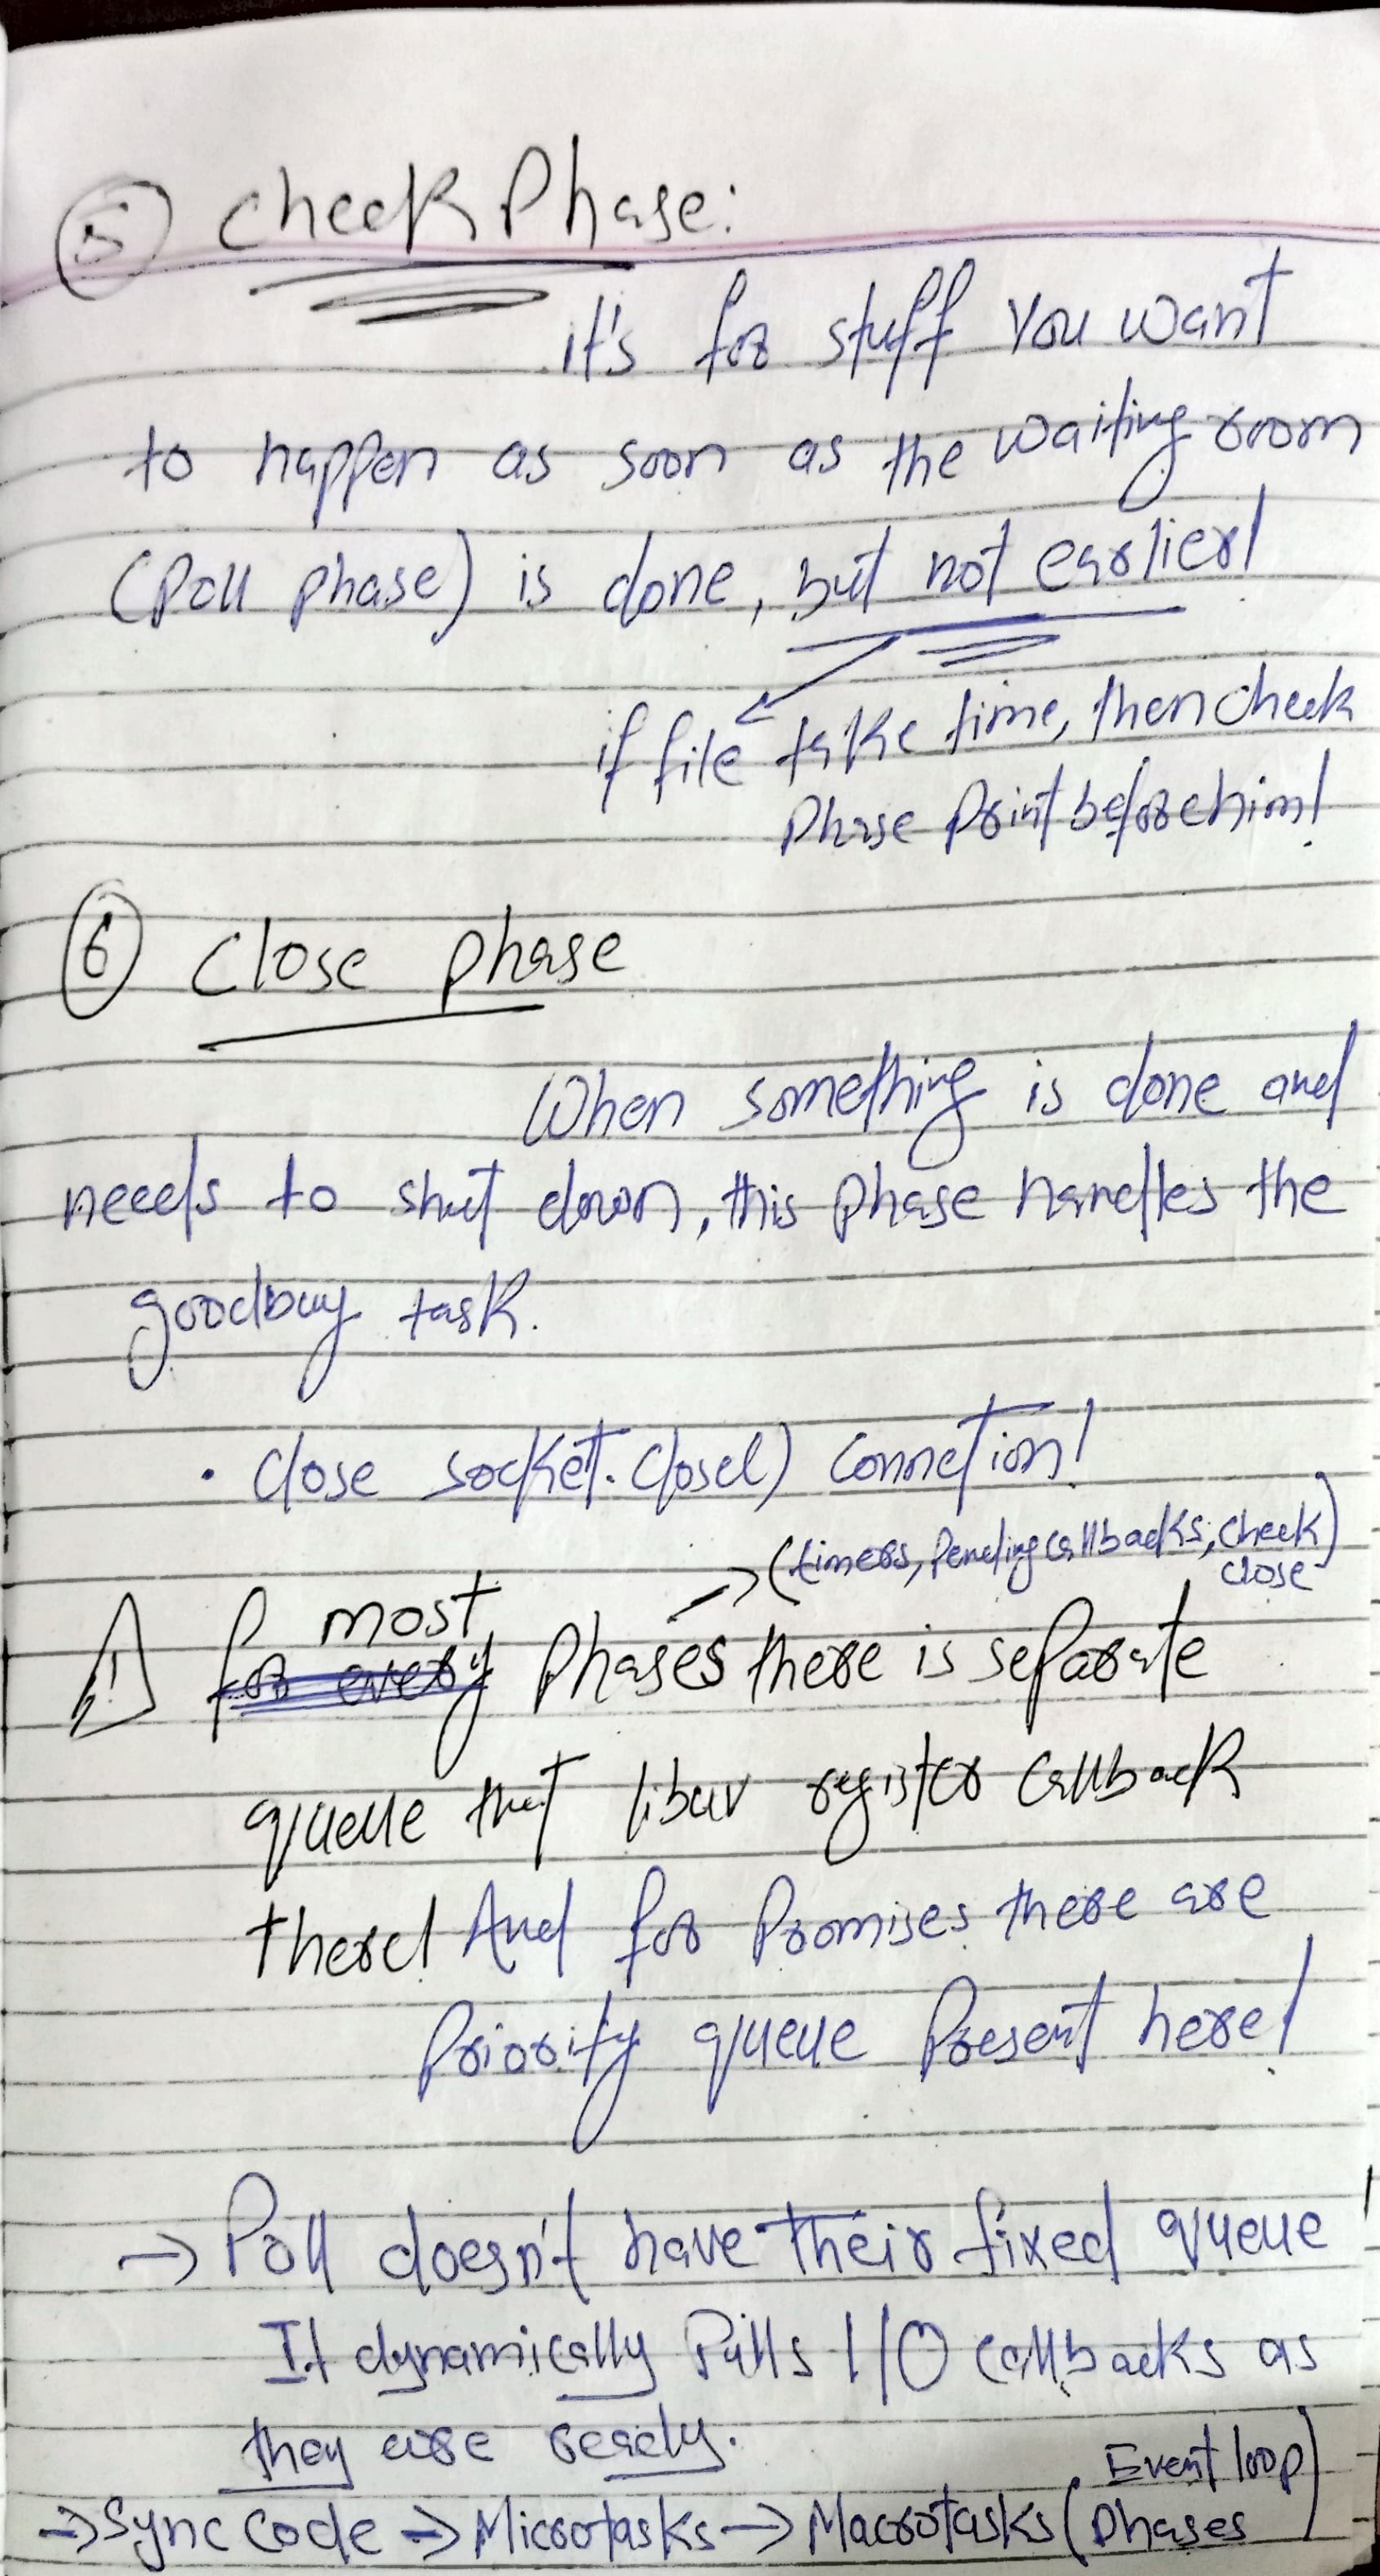 5 Check Phase:
it's for stuff you want
to happen as soon as the waiting room
(Poll phase) is done, but not earlier!
if file take time, then check
Phase Print before him!
6 Close phase
When something is done and
needs to shut down, this phase handles the
goodbuy task.
• Close socket.close() Connetion!
→ (timers, Pending callbacks, check
close)
most
for every Phases there is separate
queue that libuv register callback
there! And for Promises there are
Priority queue Present here!
→ Poll doesn't have their fixed queue!
It dynamically Pulls I/O callbacks as
they are ready.
→ Sync Code → Microtasks → Macrotasks (Event loop
Phases)